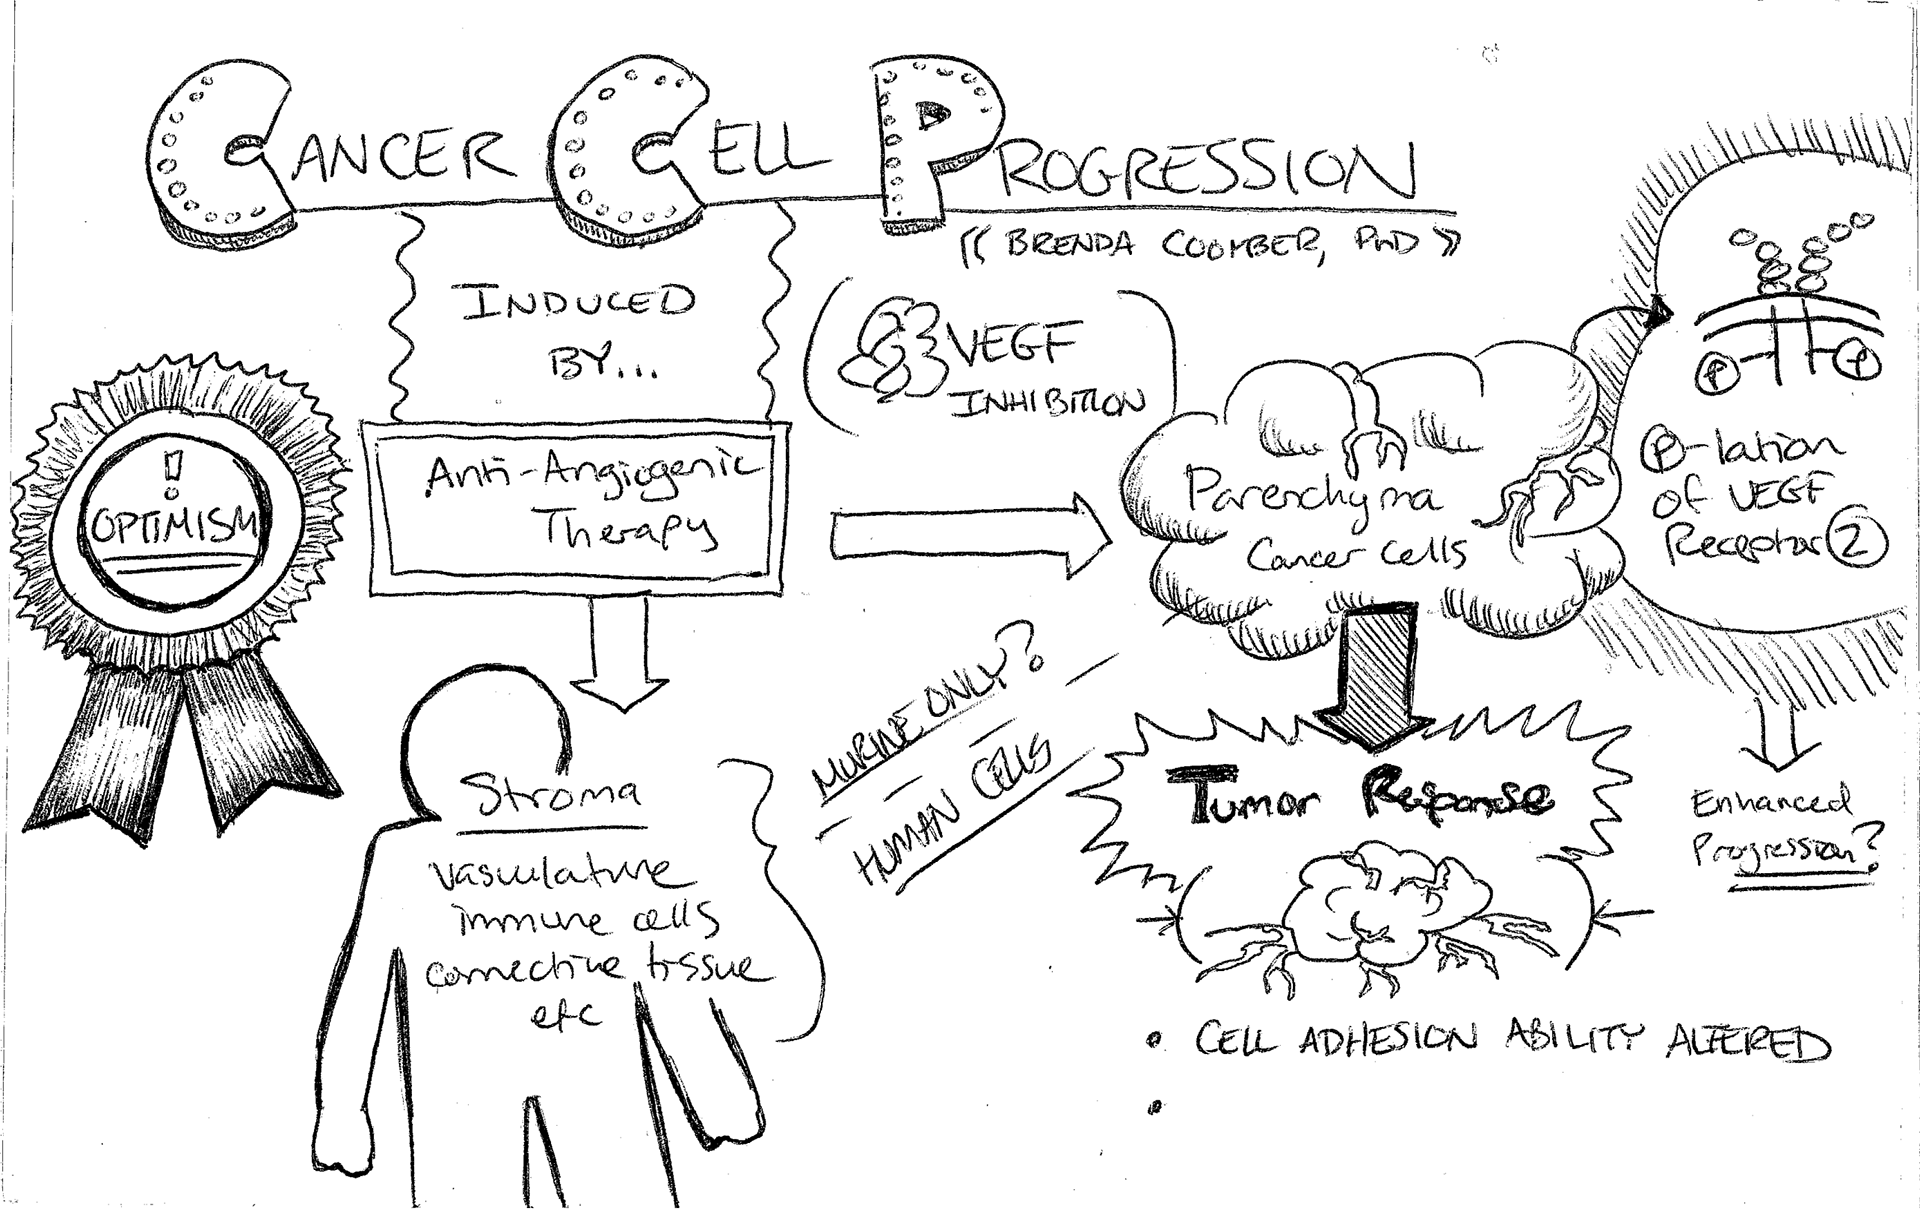 CANCER CELL PROGRESSION
(( BRENDA COOMBER, PhD ))
INDUCED
BY...
VEGF
INHIBITION
! OPTIMISM
Anti-Angiogenic
Therapy
Parenchyma
Cancer Cells
P P
P-lation
of VEGF
Receptor 2
Enhanced
Progression?
MURINE ONLY?
HUMAN CELLS
Stroma
vasculature
immune cells
connective tissue
etc
Tumor Response
• CELL ADHESION ABILITY ALTERED
•